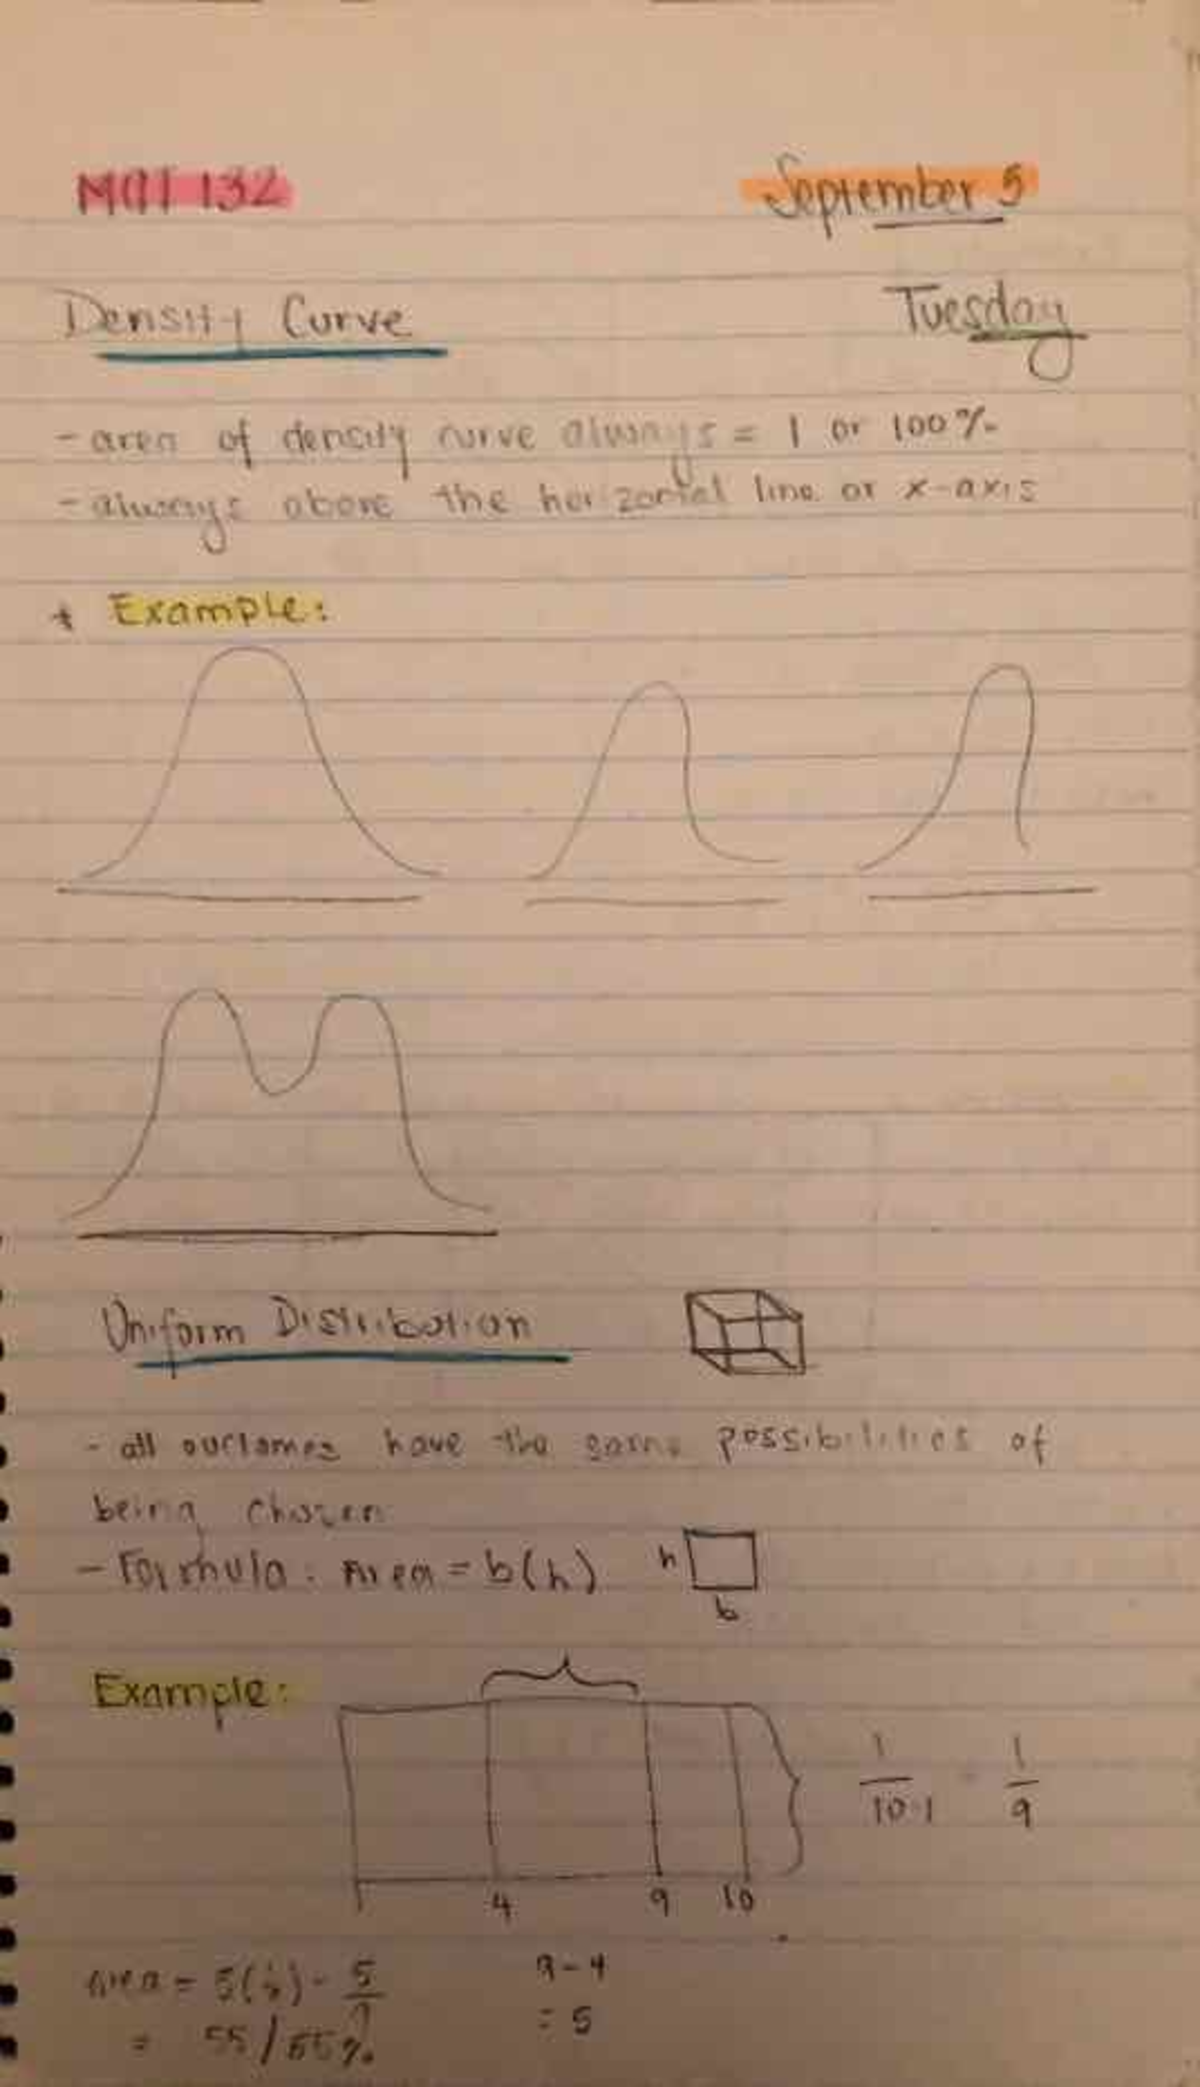 MAT 132
September 5
Density Curve
Tuesday
- area of density curve always = 1 or 100%
- always above the horizontal line or x-axis
* Example:
Uniform Distribution
- all outcomes have the same possibilities of
being chosen
- Formula: Area = b(h)
h
b
Example:
1/10-1 = 1/9
4 9 10
Area = 5(1/9) = 5/9
9-4
= 55/55%
= 5